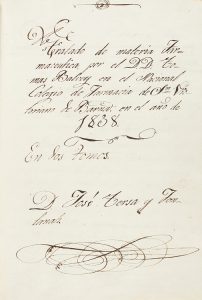 Tratado de materia Far-
maceutica por el D.D. To-
mas Balvey en el Nacional
Colegio de Farmacia de Sn. Vic-
toriano de Barna. en el año de
1838
En dos tomos
D. José Tersa y Fon-